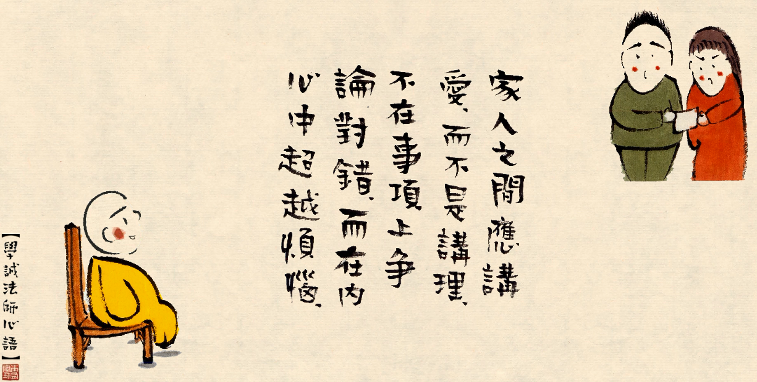 家人之間應講
愛、而不是講理、
不在事項上爭
論對錯、而在內
心中超越煩惱、
【學誠法師心語】